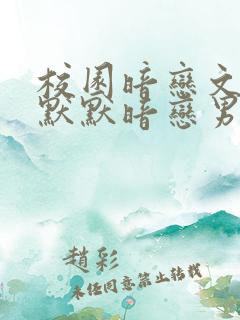 校園暗戀文
默默暗戀男
趙彩
未經同意禁止轉載